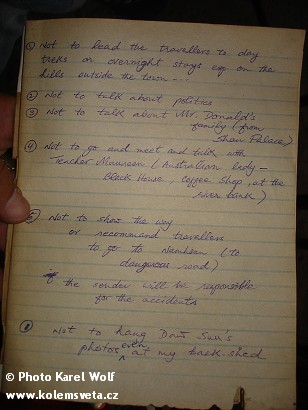 ① Not to lead the travellers to day
treks or overnight stays eg on the
hills outside the town ---
② Not to talk about politics
③ Not to talk about Mr. Donald's
family (from
Shan Palace)
④ Not to go and meet and talk with
Teacher Maureen (Australian lady-
Black House, Coffee Shop, at the
river bank)
⑤ Not to show the way
or recommend travellers
to go to Namhsan (to
dangerous road)
If the sender will be responsible
for the accidents
⑥ Not to hang Daw Suu's
photos even at my back-shed
© Photo Karel Wolf
www.kolemsveta.cz